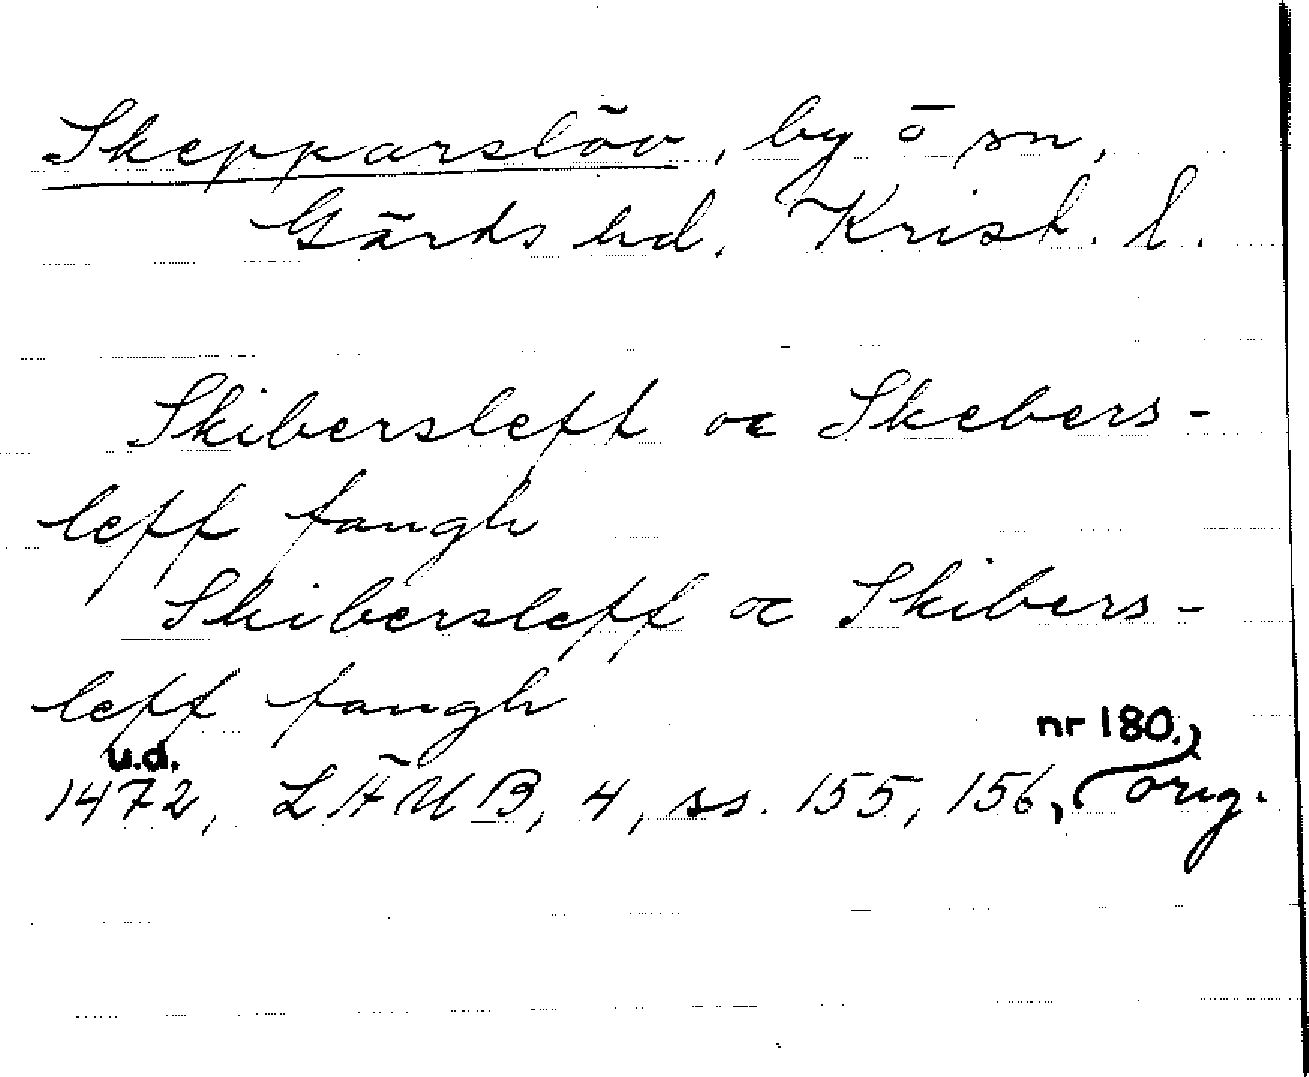 Skepparslöv, by o sn,
Gärds hd. Krist. l.
Skibersleff oc Skebers-
leff fangh
Skibersleff oc Skibers-
leff fangh
nr 180.
u.d.
1472, LÄUB, 4, ss. 155, 156, orig.